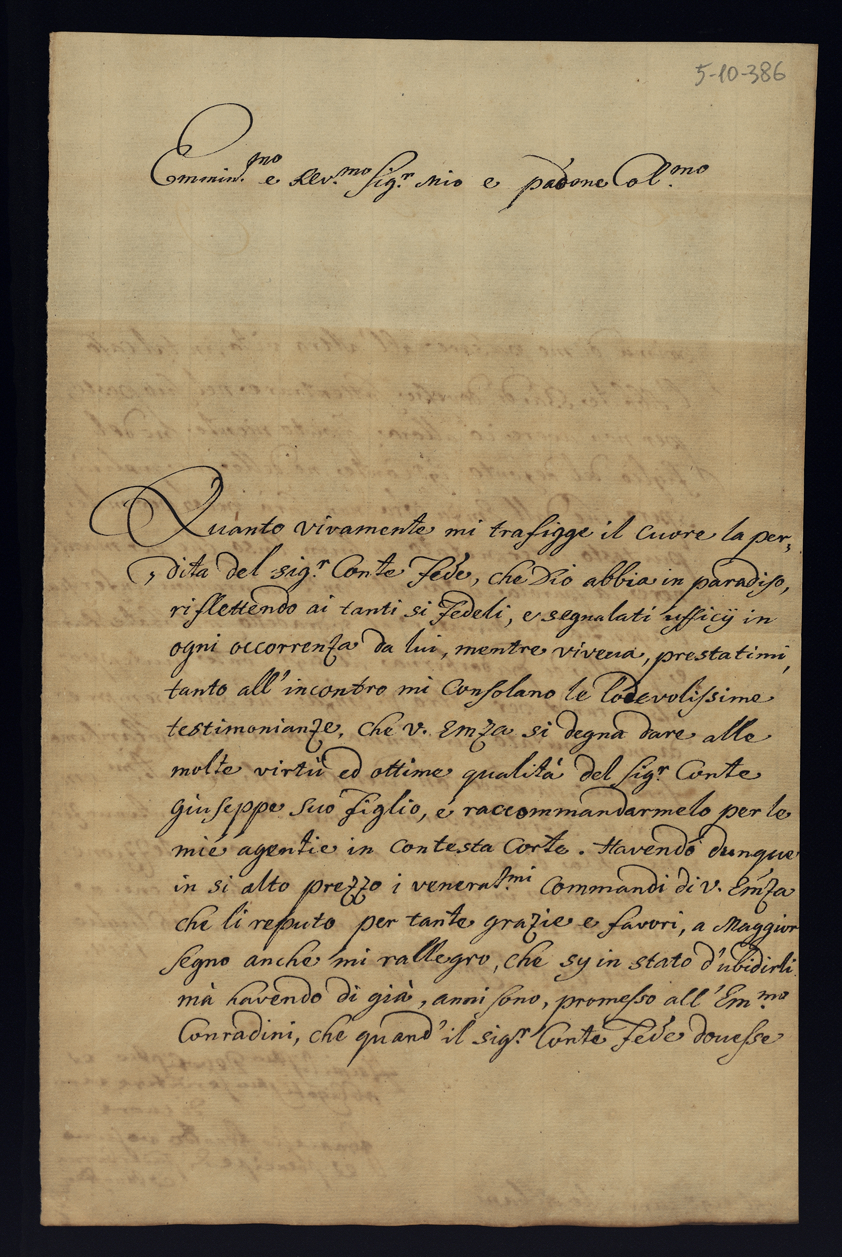 5-10-386
Emmin.mo e Rev.mo Sig.r Mio e padone Col.mo
Quanto vivamente mi trafigge il cuore la per,,
,, dita del Sig.r Conte Fede, che Dio abbia in paradiso,
riflettendo ai tanti si Fedeli, e segnalati ufficij in
ogni occorrenza da lui, mentre viveua, prestatimi,
tanto all'incontro mi Consolano le lodevolissime
testimonianze, che V. Emza si degna dare alle
molte virtù ed ottime qualità del Sigr Conte
Giuseppe suo Figlio, e raccommandarmelo per le
mie agentie in Contesta Corte. Havendo dunque
in si alto prezzo i venerat.mi Commandi di V. Emza
che li reputo per tante grazie e favori, a Maggior
segno anche mi rallegro, che sy in stato d'ubidirli.
mà havendo di già, anni sono, promesso all'Em.mo
Conradini, che quand'il sigr. Conte Fede douesse